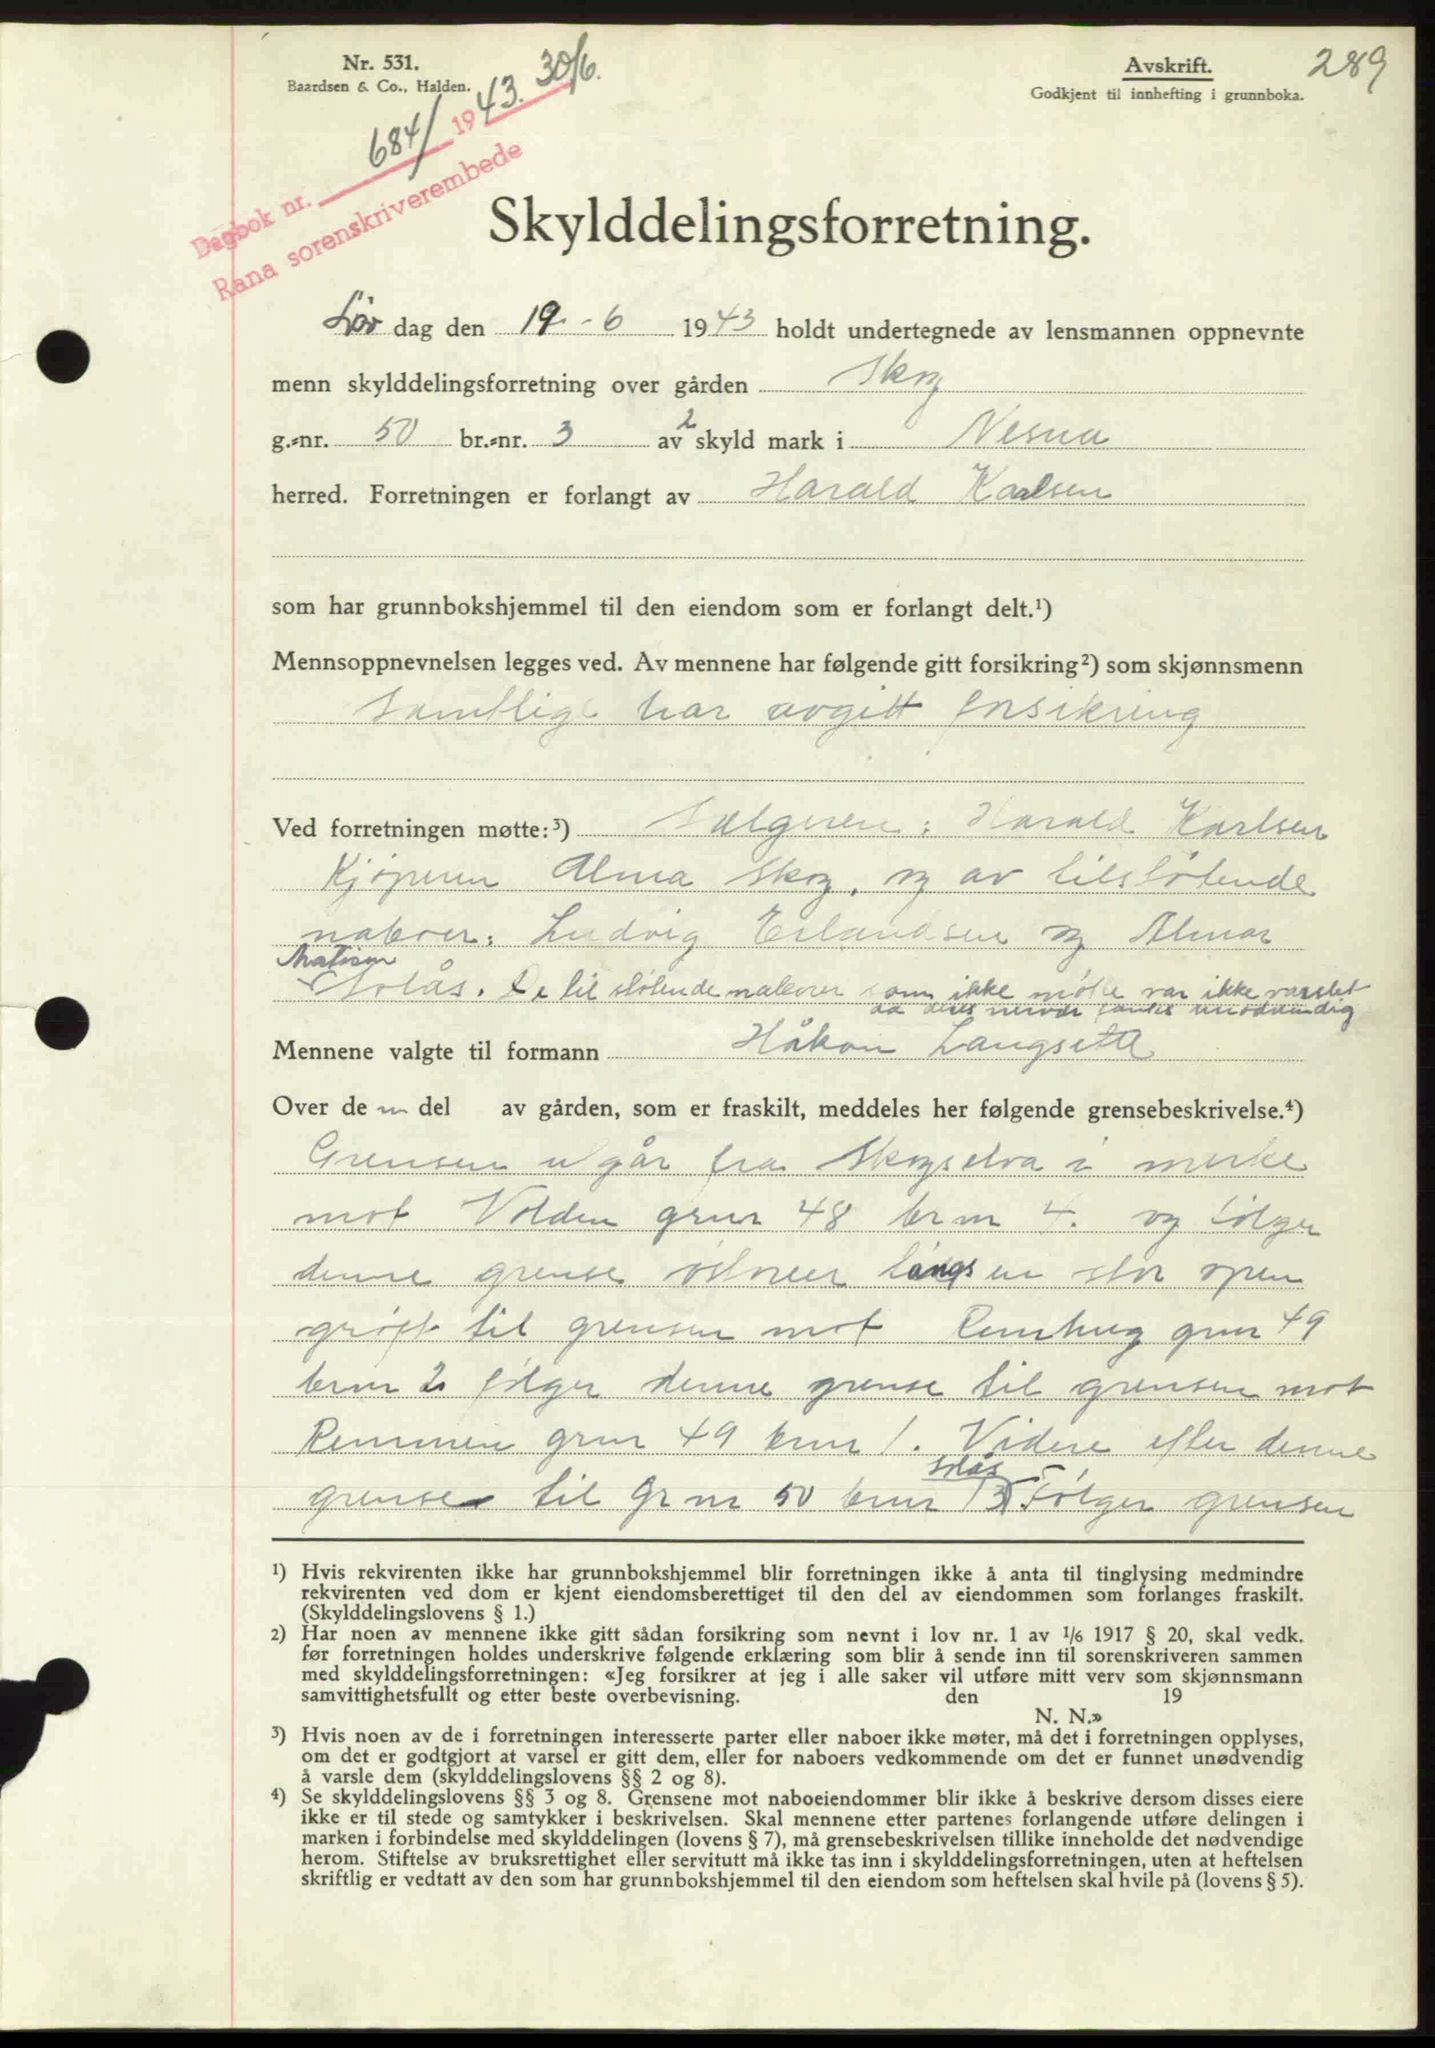 Nr. 531.
Baardsen & Co., Halden.
Avskrift.
Godkjent til innhefting i grunnboka.
289
Dagbok nr. 684/ 1943. 30/6.
Rana sorenskriverembede
Skylddelingsforretning.
Lør dag den 19 - 6 1943 holdt undertegnede av lensmannen oppnevnte
menn skylddelingsforretning over gården Skog
g.-nr. 50 br.-nr. 3 av 2 skyld mark i Nesna
herred. Forretningen er forlangt av Harald Karlsen
som har grunnbokshjemmel til den eiendom som er forlangt delt.¹)
Mennsoppnevnelsen legges ved. Av mennene har følgende gitt forsikring²) som skjønnsmenn
Samtlige har avgitt forsikring
Ved forretningen møtte:³) Sælgeren: Harald Karlsen
Kjøperen Alma Skog, og av tilstøtende
naboer: Ludvig Erlandsen og Almar
Solås. De tilstøtende naboer som ikke møtte var ikke varslet
da deres nervær fantes unødvendig
Mennene valgte til formann Håkon Langseth
Over de n del av gården, som er fraskilt, meddeles her følgende grensebeskrivelse.⁴)
Grensen u går fra Skogselva i merke
mot Volden grnr 48 brnr 4. og følger
denne grense østover langs en stor open
grøft til grensen mot Remhug gnr 49
brnr 2 følger denne grense til grensen mot
Remmen grnr 49 brnr 1. Videre efter denne
grense til Gr nr 50 brnr 13 Solås Følger grensen
¹) Hvis rekvirenten ikke har grunnbokshjemmel blir forretningen ikke å anta til tinglysing medmindre
rekvirenten ved dom er kjent eiendomsberettiget til den del av eiendommen som forlanges fraskilt.
(Skylddelingslovens § 1.)
²) Har noen av mennene ikke gitt sådan forsikring som nevnt i lov nr. 1 av 1/6 1917 § 20, skal vedk.
før forretningen holdes underskrive følgende erklæring som blir å sende inn til sorenskriveren sammen
med skylddelingsforretningen: «Jeg forsikrer at jeg i alle saker vil utføre mitt verv som skjønnsmann
samvittighetsfullt og etter beste overbevisning. den 19
N. N.»
³) Hvis noen av de i forretningen interesserte parter eller naboer ikke møter, må det i forretningen opplyses,
om det er godtgjort at varsel er gitt dem, eller for naboers vedkommende om det er funnet unødvendig
å varsle dem (skylddelingslovens §§ 2 og 8).
⁴) Se skylddelingslovens §§ 3 og 8. Grensene mot naboeiendommer blir ikke å beskrive dersom disses eiere
ikke er til stede og samtykker i beskrivelsen. Skal mennene etter partenes forlangende utføre delingen i
marken i forbindelse med skylddelingen (lovens § 7), må grensebeskrivelsen tillike inneholde det nødvendige
herom. Stiftelse av bruksrettighet eller servitutt må ikke tas inn i skylddelingsforretningen, uten at heftelsen
skriftlig er vedtatt av den som har grunnbokshjemmel til den eiendom som heftelsen skal hvile på (lovens § 5).